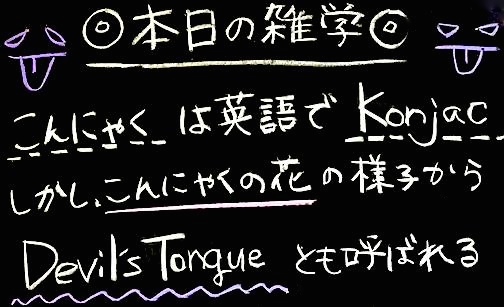 ◎本日の雑学◎
こんにゃくは英語でKonjac
しかし、こんにゃくの花の様子から
Devil's Tongueとも呼ばれる